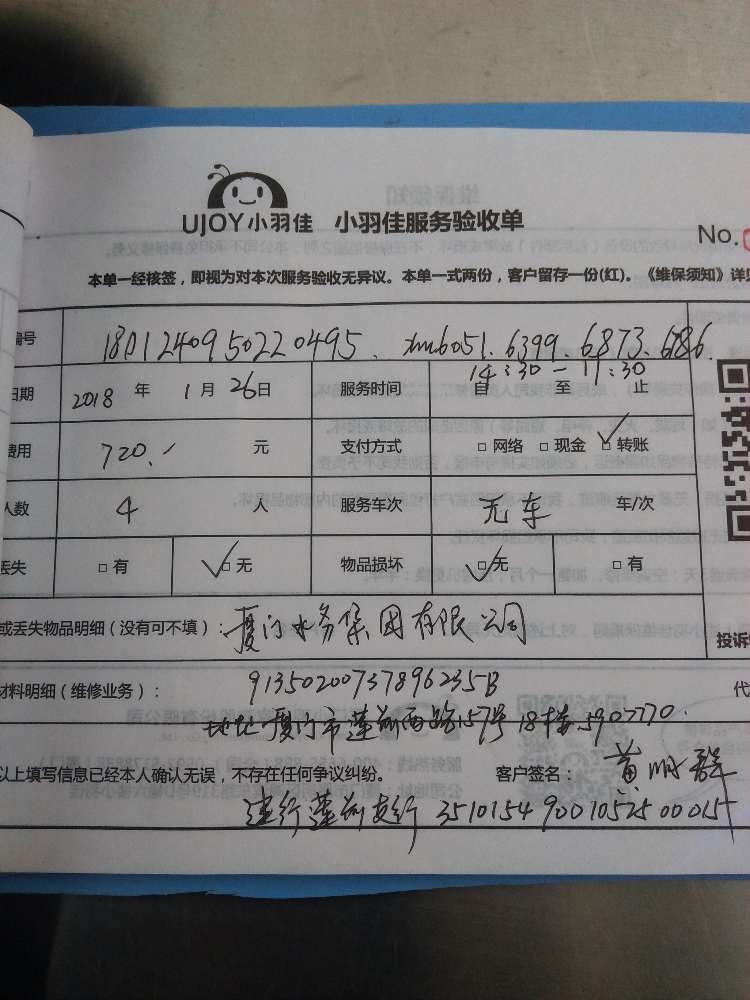 UJOY小羽佳 小羽佳服务验收单
No.
本单一经核签，即视为对本次服务验收无异议。本单一式两份，客户留存一份(红)。《维保须知》详见
编号 1801240950220495. xm6051.6399.6873.686.
日期 2018 年 1 月 26 日 服务时间 自 14:30 至 — 17:30 止
费用 720.- 元 支付方式 □ 网络 □ 现金 ☑ 转账
人数 4 人 服务车次 无车 车/次
丢失 □ 有 ☑ 无 物品损坏 ☑ 无 □ 有
或丢失物品明细（没有可不填）： 厦门水务集团有限公司
投诉
材料明细（维修业务）： 91350200737896235B
代
地址 厦门市莲前西路157号18楼 5907770.
以上填写信息已经本人确认无误，不存在任何争议纠纷。 客户签名： 黄
建行莲前支行 35101549001052500015